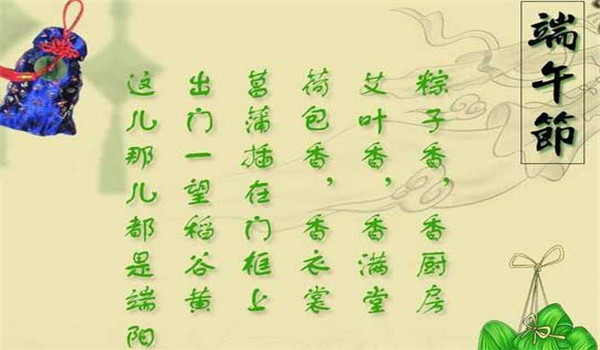 端午節
粽子香，香厨房
艾叶香，香满堂
荷包香，香衣裳
菖蒲插在门框上
出门一望稻谷黄
这儿那儿都是端阳